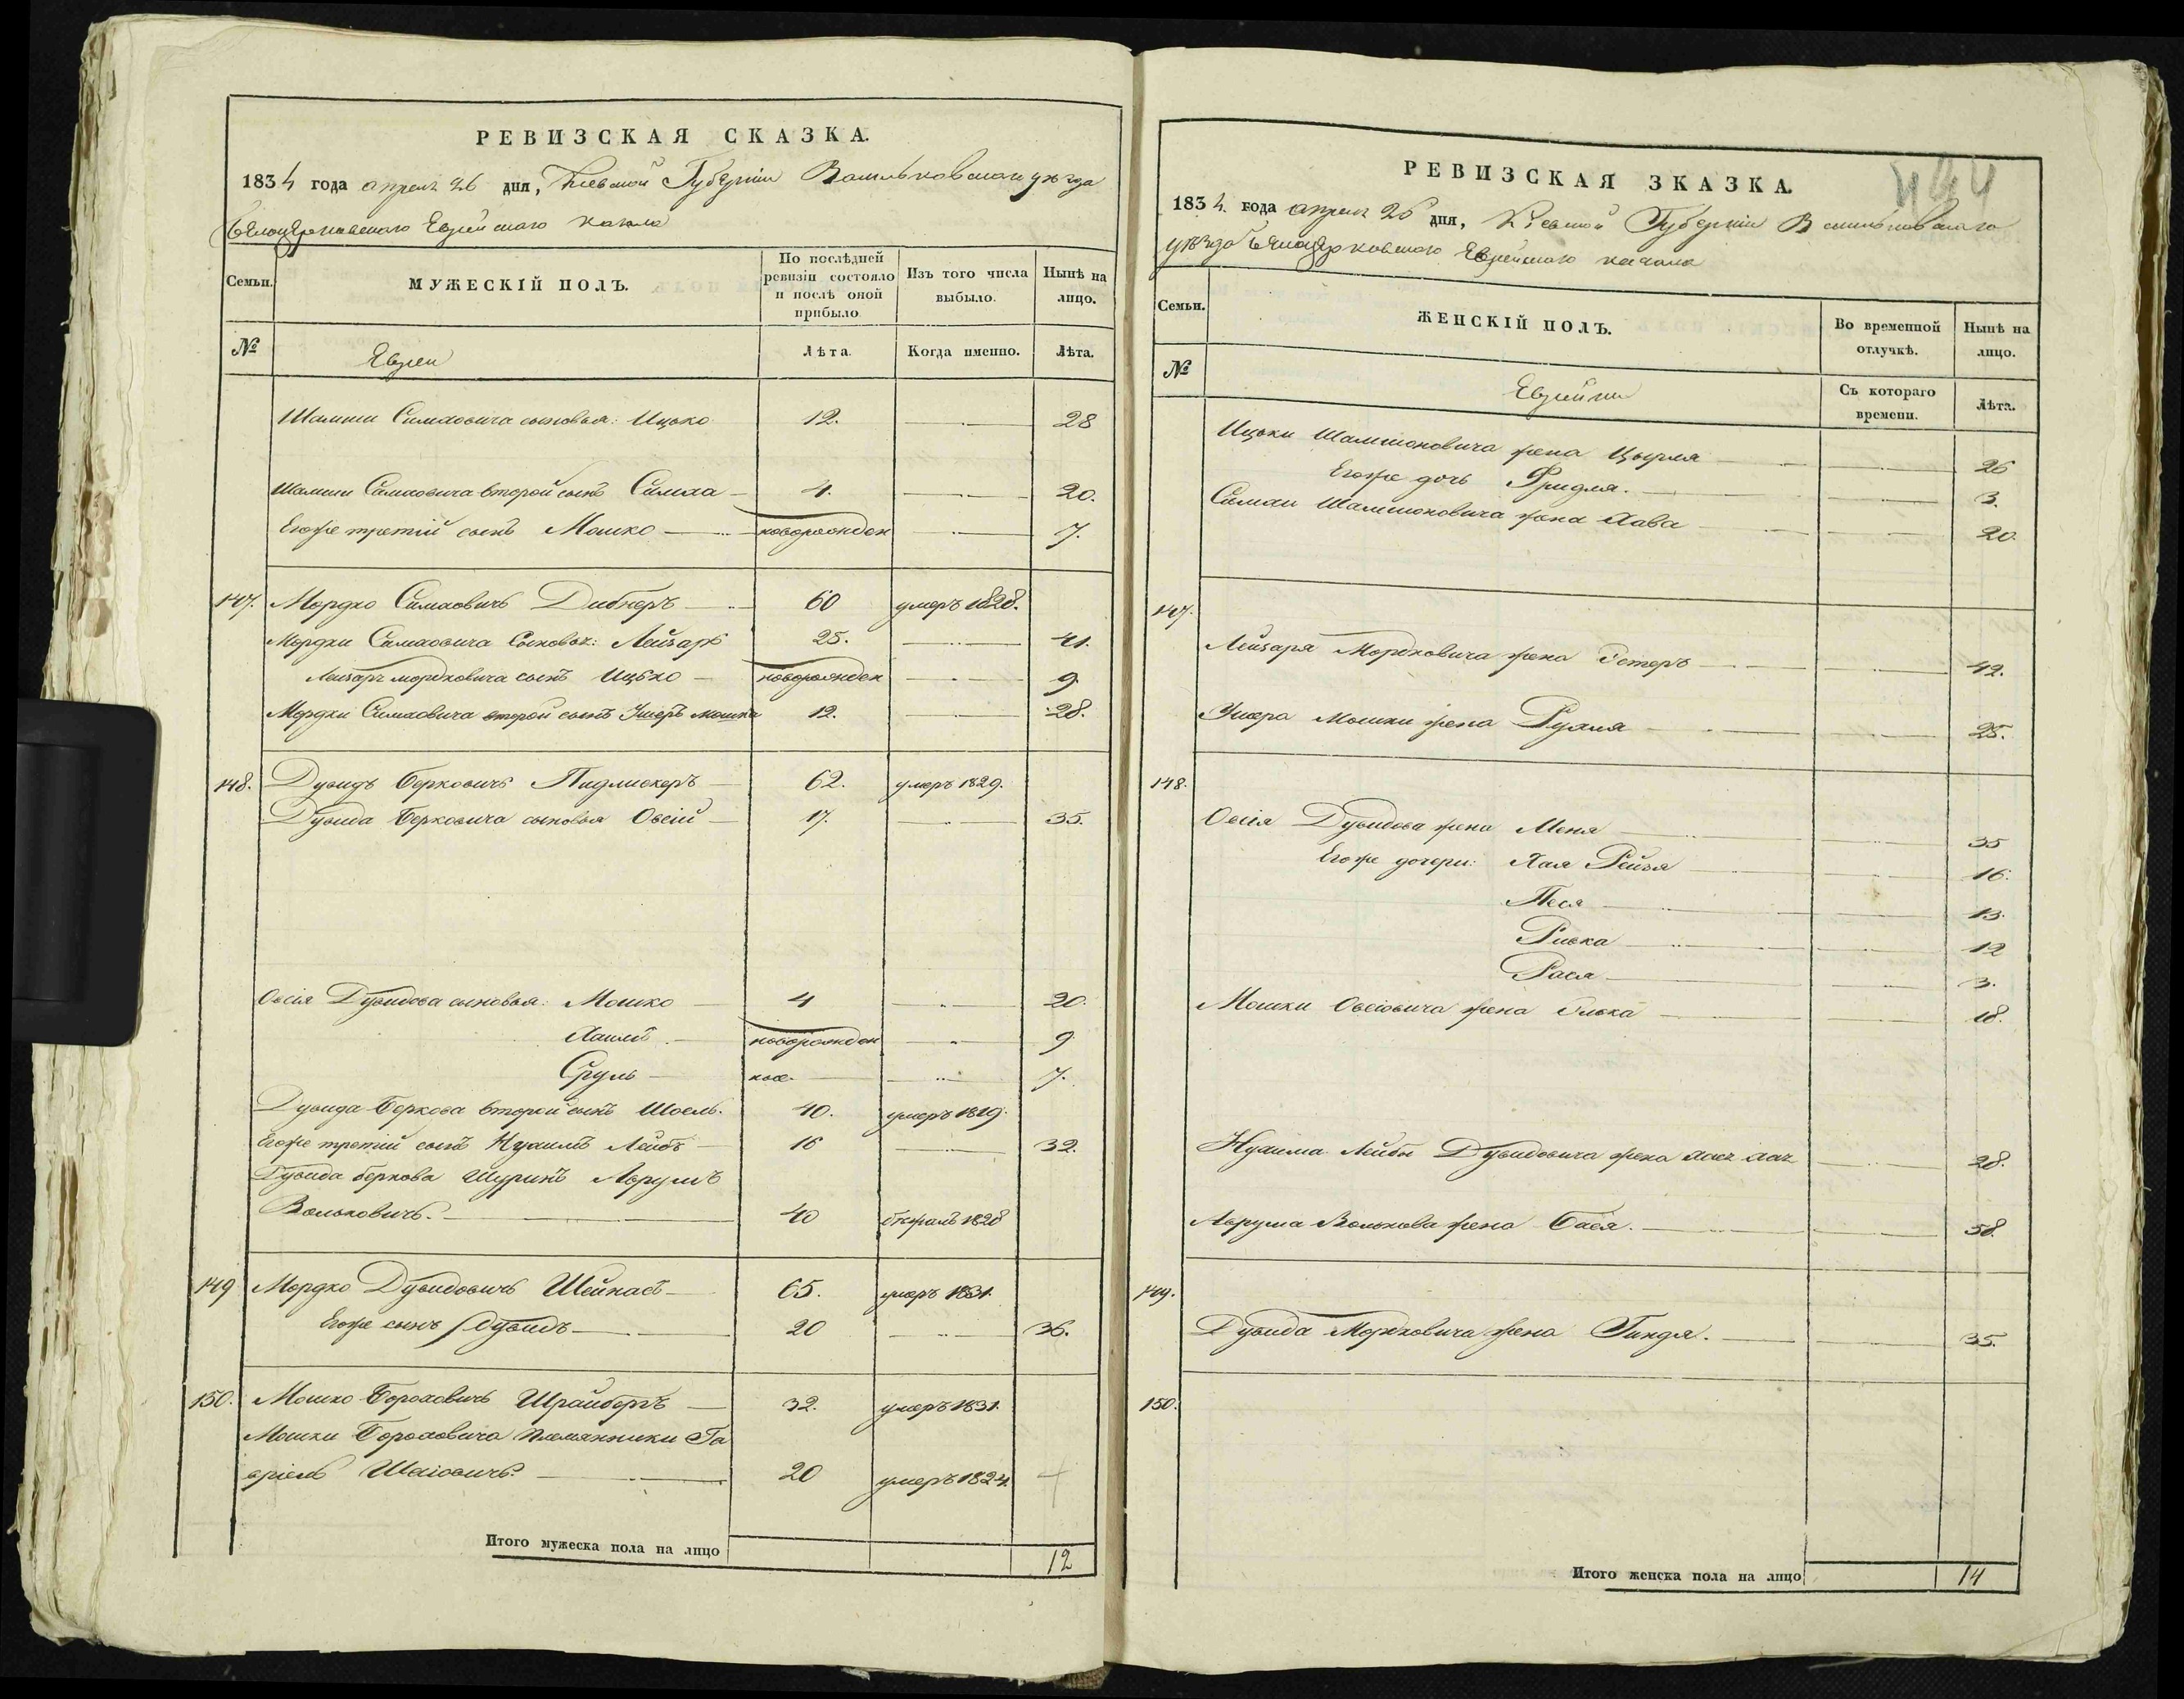 РЕВИЗСКАЯ СКАЗКА.
1834 года апреля 26 дня, Киевской Губерніи Васильковскаго уѣзда
Бѣлоцерковскаго Еврейскаго кагала
Семьи.
МУЖЕСКІЙ ПОЛЪ.
По послѣдней ревизіи состояло и послѣ оной прибыло
Изъ того числа выбыло.
Нынѣ на лицо.
№
Евреи
Лѣта.
Когда именно.
Лѣта.
Шамши Симховича сыновья: Ицько 12. 28
Шамши Симховича второй сынъ Симха 4. 20.
Егоже третій сынъ Мошко новорожден 7.
147. Мордко Симховичъ Дибнеръ 60 умеръ 1828.
Мордки Симховича Сыновья: Лейзаръ 25. 41.
Лейзаръ мордковича сынъ Ицько новорожден 9
Мордки Симховича второй сынъ Ушеръ мошка 12. 28.
148. Дувидъ Берковичъ Пидлискеръ 62. умеръ 1829.
Дувида Берковича сыновья Овсій 17. 35.
Овсія Дувидова сыновья: Мошко 4 20.
Хаимъ новорожден 9
Сруль нов. 7.
Дувида Беркова второй сынъ Шоель. 40. умеръ 1819.
Егоже третій сынъ Нухимъ Лейбъ 16 32.
Дувида беркова Шуринъ Аврумъ
Вольковичъ. 40 1828
149 Мордко Дувидовичъ Шейнасъ 65. умеръ 1831.
Егоже сынъ Дувидъ 20 36.
150. Мошко Бороховичъ Шрайберъ 32. умеръ 1831.
Мошки Бороховича племянники Га
вріель Шаіовичъ. 20 умеръ 1824.
Итого мужеска пола на лицо 12
РЕВИЗСКАЯ ЗКАЗКА.
1834. года апреля 26 дня, Киевской Губерніи Васильковскаго
уѣзда Бѣлоцерковскаго Еврейскаго кагала
Семьи.
ЖЕНСКІЙ ПОЛЪ.
Во временной отлучкѣ.
Нынѣ на лицо.
№
Еврейки
Съ котораго времени.
Лѣта.
Ицьки Шамшоновича жена Цырля 26
Егоже дочь Фридля. 3.
Симхи Шамшоновича жена Хава 20.
147.
Лейзаря Мордковича жена Эстеръ 42.
Ушера Мошки жена Рухля 25.
148.
Овсія Дувидова жена Меня 35
Егоже дочери: Хая Рейзя 16.
Песя 13.
Ривка 12
Рася 3.
Мошки Овсіовича жена Ривка 18.
Нухима Лейбы Дувидовича жена 28.
Аврума Волькова жена Бася. 58.
149.
Дувида Мордковича жена Гиндя. 35.
150.
Итого женска пола на лицо 14